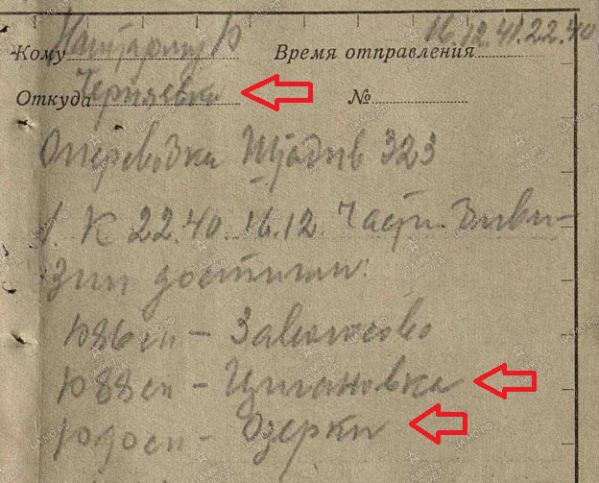 Кому Наштарму 10 Время отправления 16.12.41.22.40
Откуда Черняевка №
Оперсводка Штадив 323
1. К 22.40. 16.12. Части диви-
зии достигли:
1086 сп –
1088 сп – Цыгановка
1090 сп – Озерки